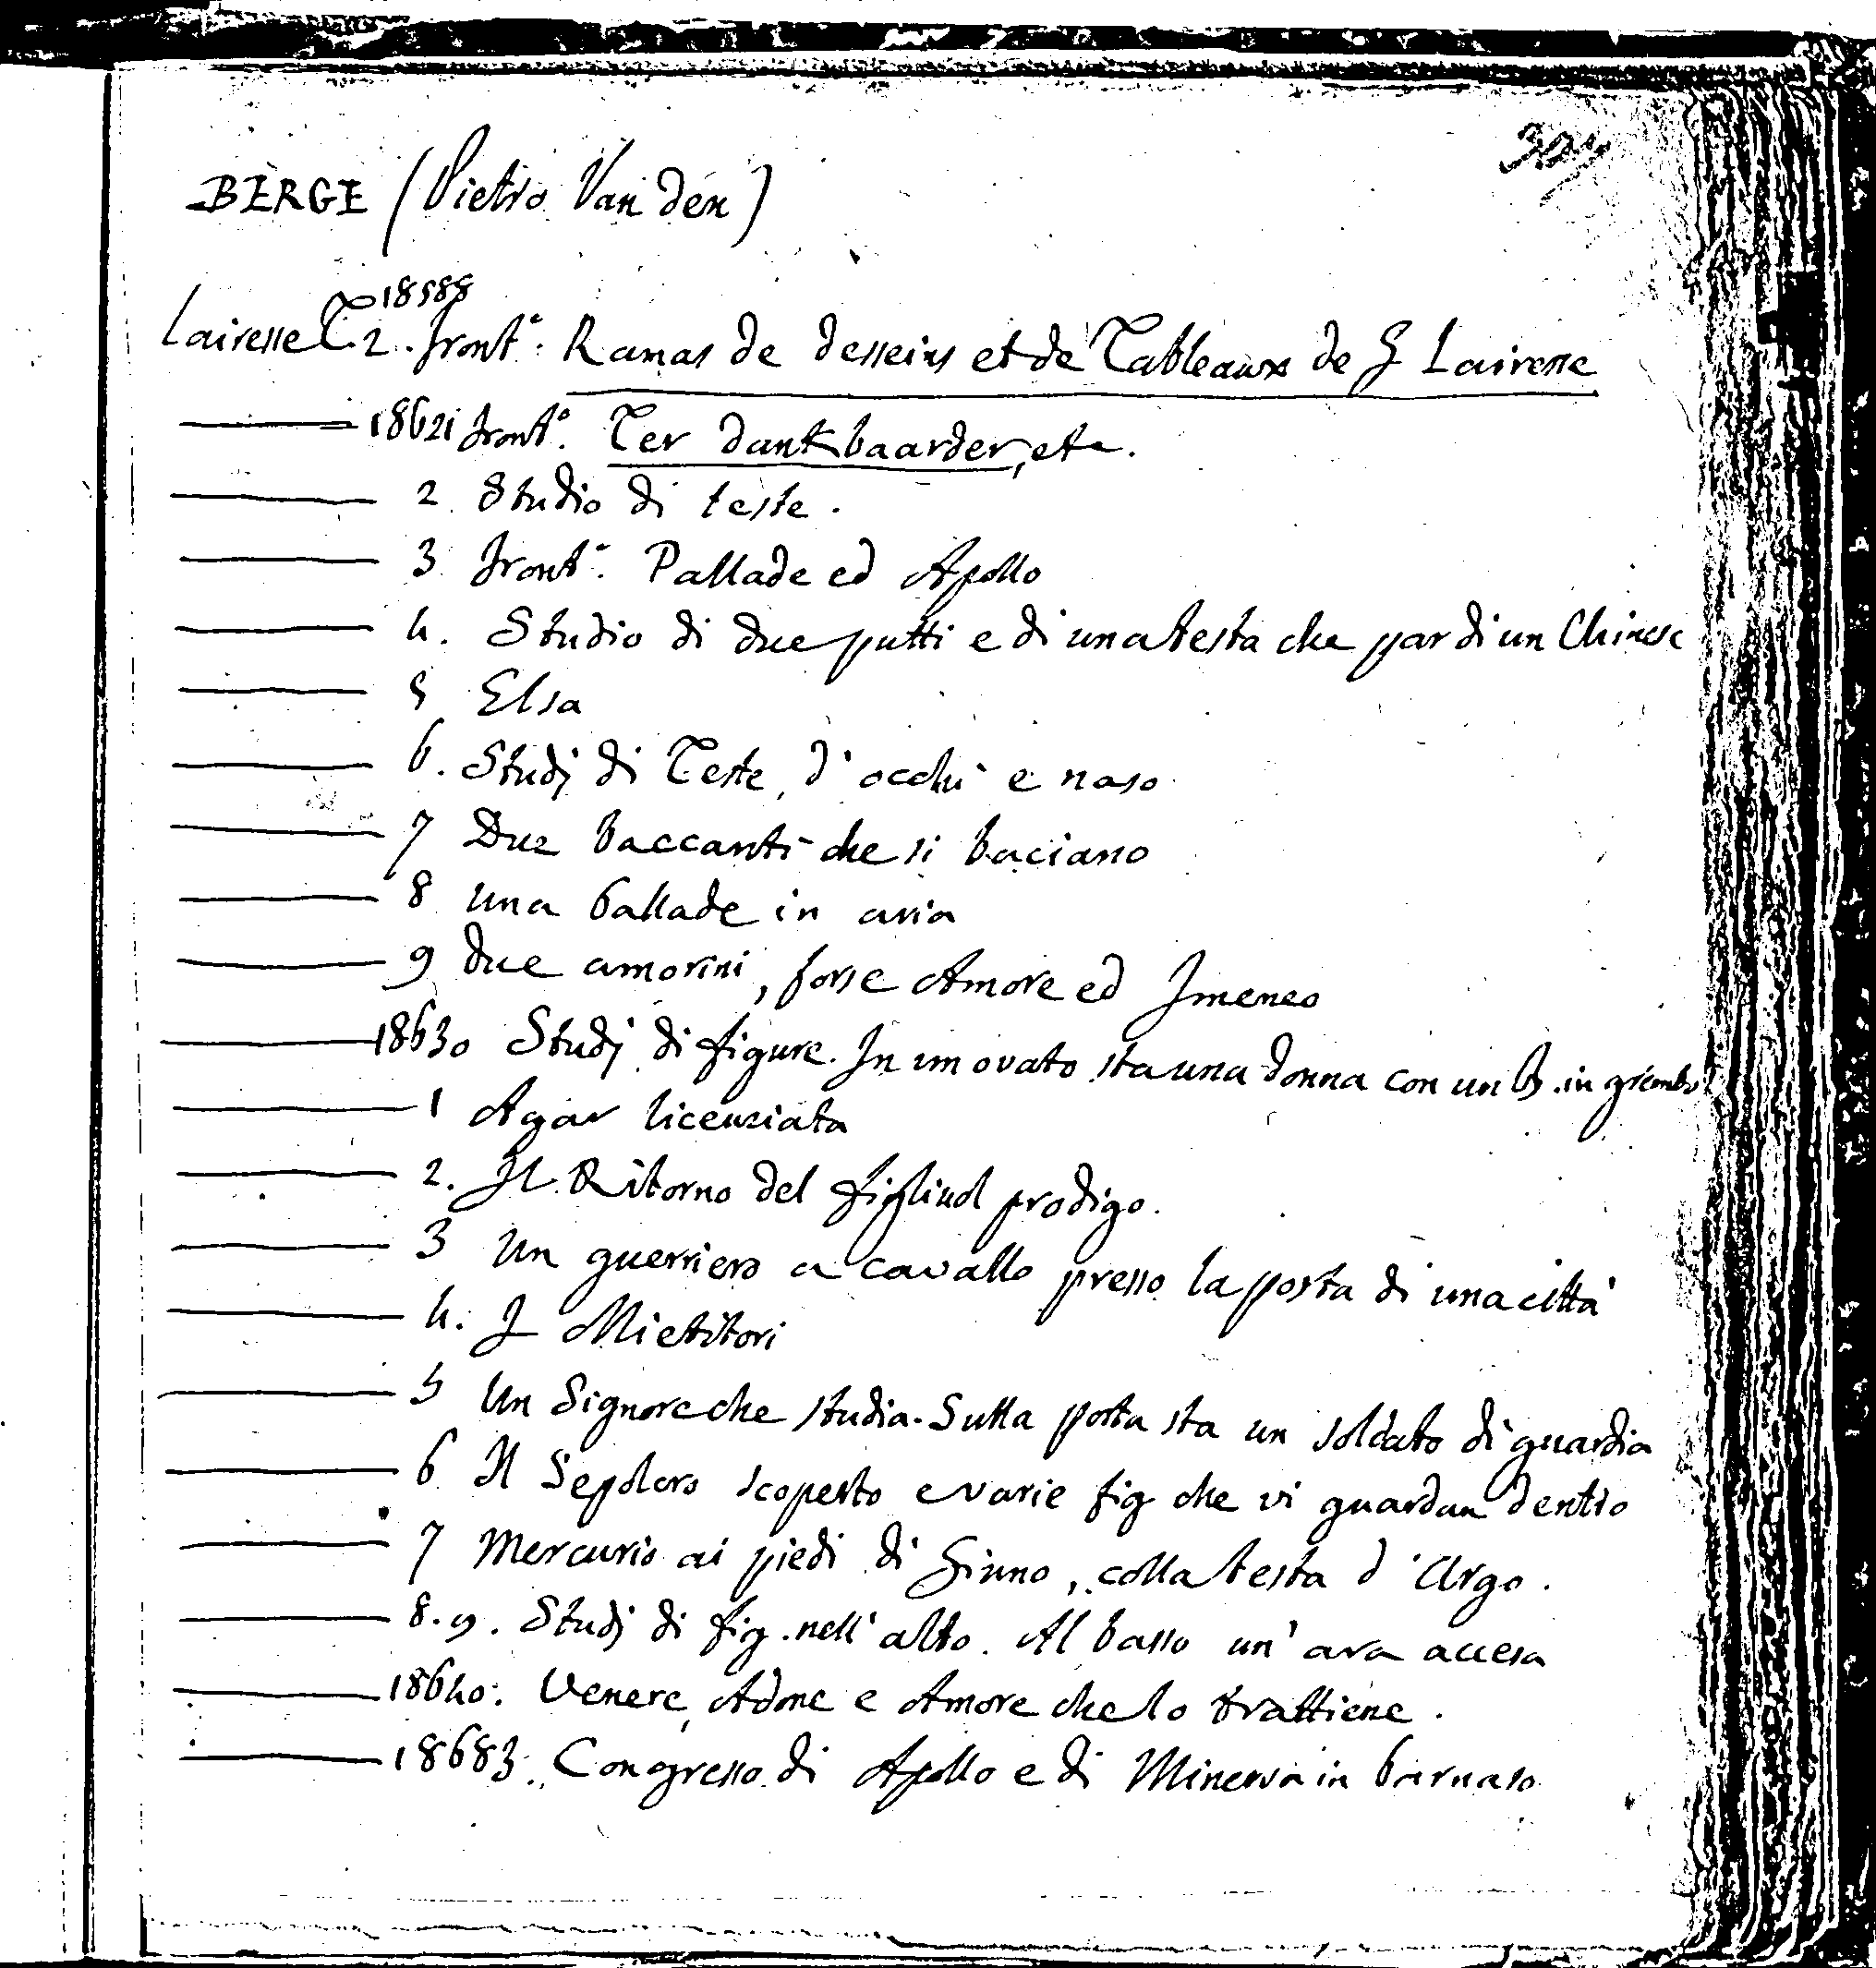 BERGE (Pietro Van den)
18588
Lairesse T. 2. front.º Ramas de desseins et de Tableaux de G Lairesse
18621 front.º Ter dankbaarder, etc.
2. Studio di teste.
3 front.º Pallade ed Apollo
4. Studio di due putti e di una testa che par di un Chinese
5 Elsa
6. Studj di Teste, d'occhi e naso
7 Due baccanti che si baciano
8 Una Pallade in aria
9 due amorini, forse Amore ed Imeneo
18630 Studj di figure. In un ovato sta una donna con un B. in grembo
1 Agar licenziata
2. Il Ritorno del figliuol prodigo.
3 Un guerriero a cavallo presso la porta di una città
4. I Mietitori
5 Un Signore che studia. Sulla porta sta un soldato di guardia
6 Il Sepolcro scoperto e varie fig che vi guardan dentro
7 Mercurio ai piedi di Giuno, colla testa d'Argo.
8. 9. Studj di fig. nell'alto. Al basso un'ara accesa
18640. Venere, Adone e Amore che lo trattiene.
18683. Congresso di Apollo e di Minerva in Parnaso